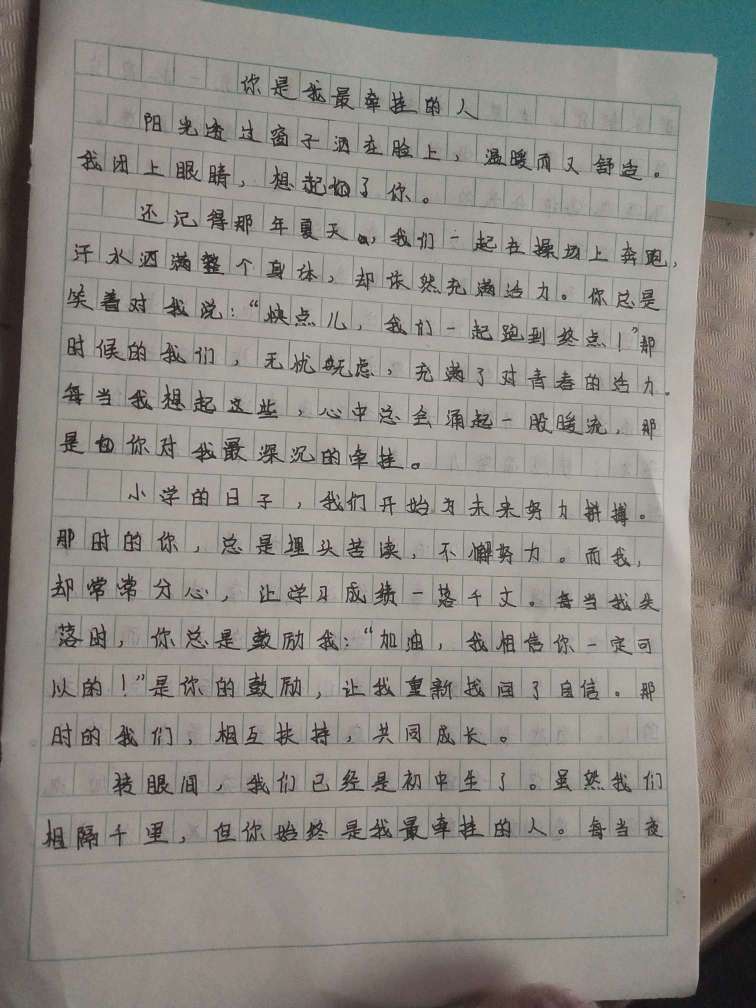 你是我最牵挂的人
阳光透过窗子洒在脸上，温暖而又舒适。
我闭上眼睛，想起了你。
还记得那年夏天，我们一起在操场上奔跑，
汗水洒满整个身体，却依然充满活力。你总是
笑着对我说：“快点儿，我们一起跑到终点！”那
时候的我们，无忧无虑，充满了对青春的活力。
每当我想起这些，心中总会涌起一股暖流，那
是你对我最深沉的牵挂。
小学的日子，我们开始为未来努力拼搏。
那时的你，总是埋头苦读，不懈努力。而我，
却常常分心，让学习成绩一落千丈。每当我失
落时，你总是鼓励我：“加油，我相信你一定可
以的！”是你的鼓励，让我重新找回了自信。那
时的我们，相互扶持，共同成长。
转眼间，我们已经是初中生了。虽然我们
相隔千里，但你始终是我最牵挂的人。每当夜